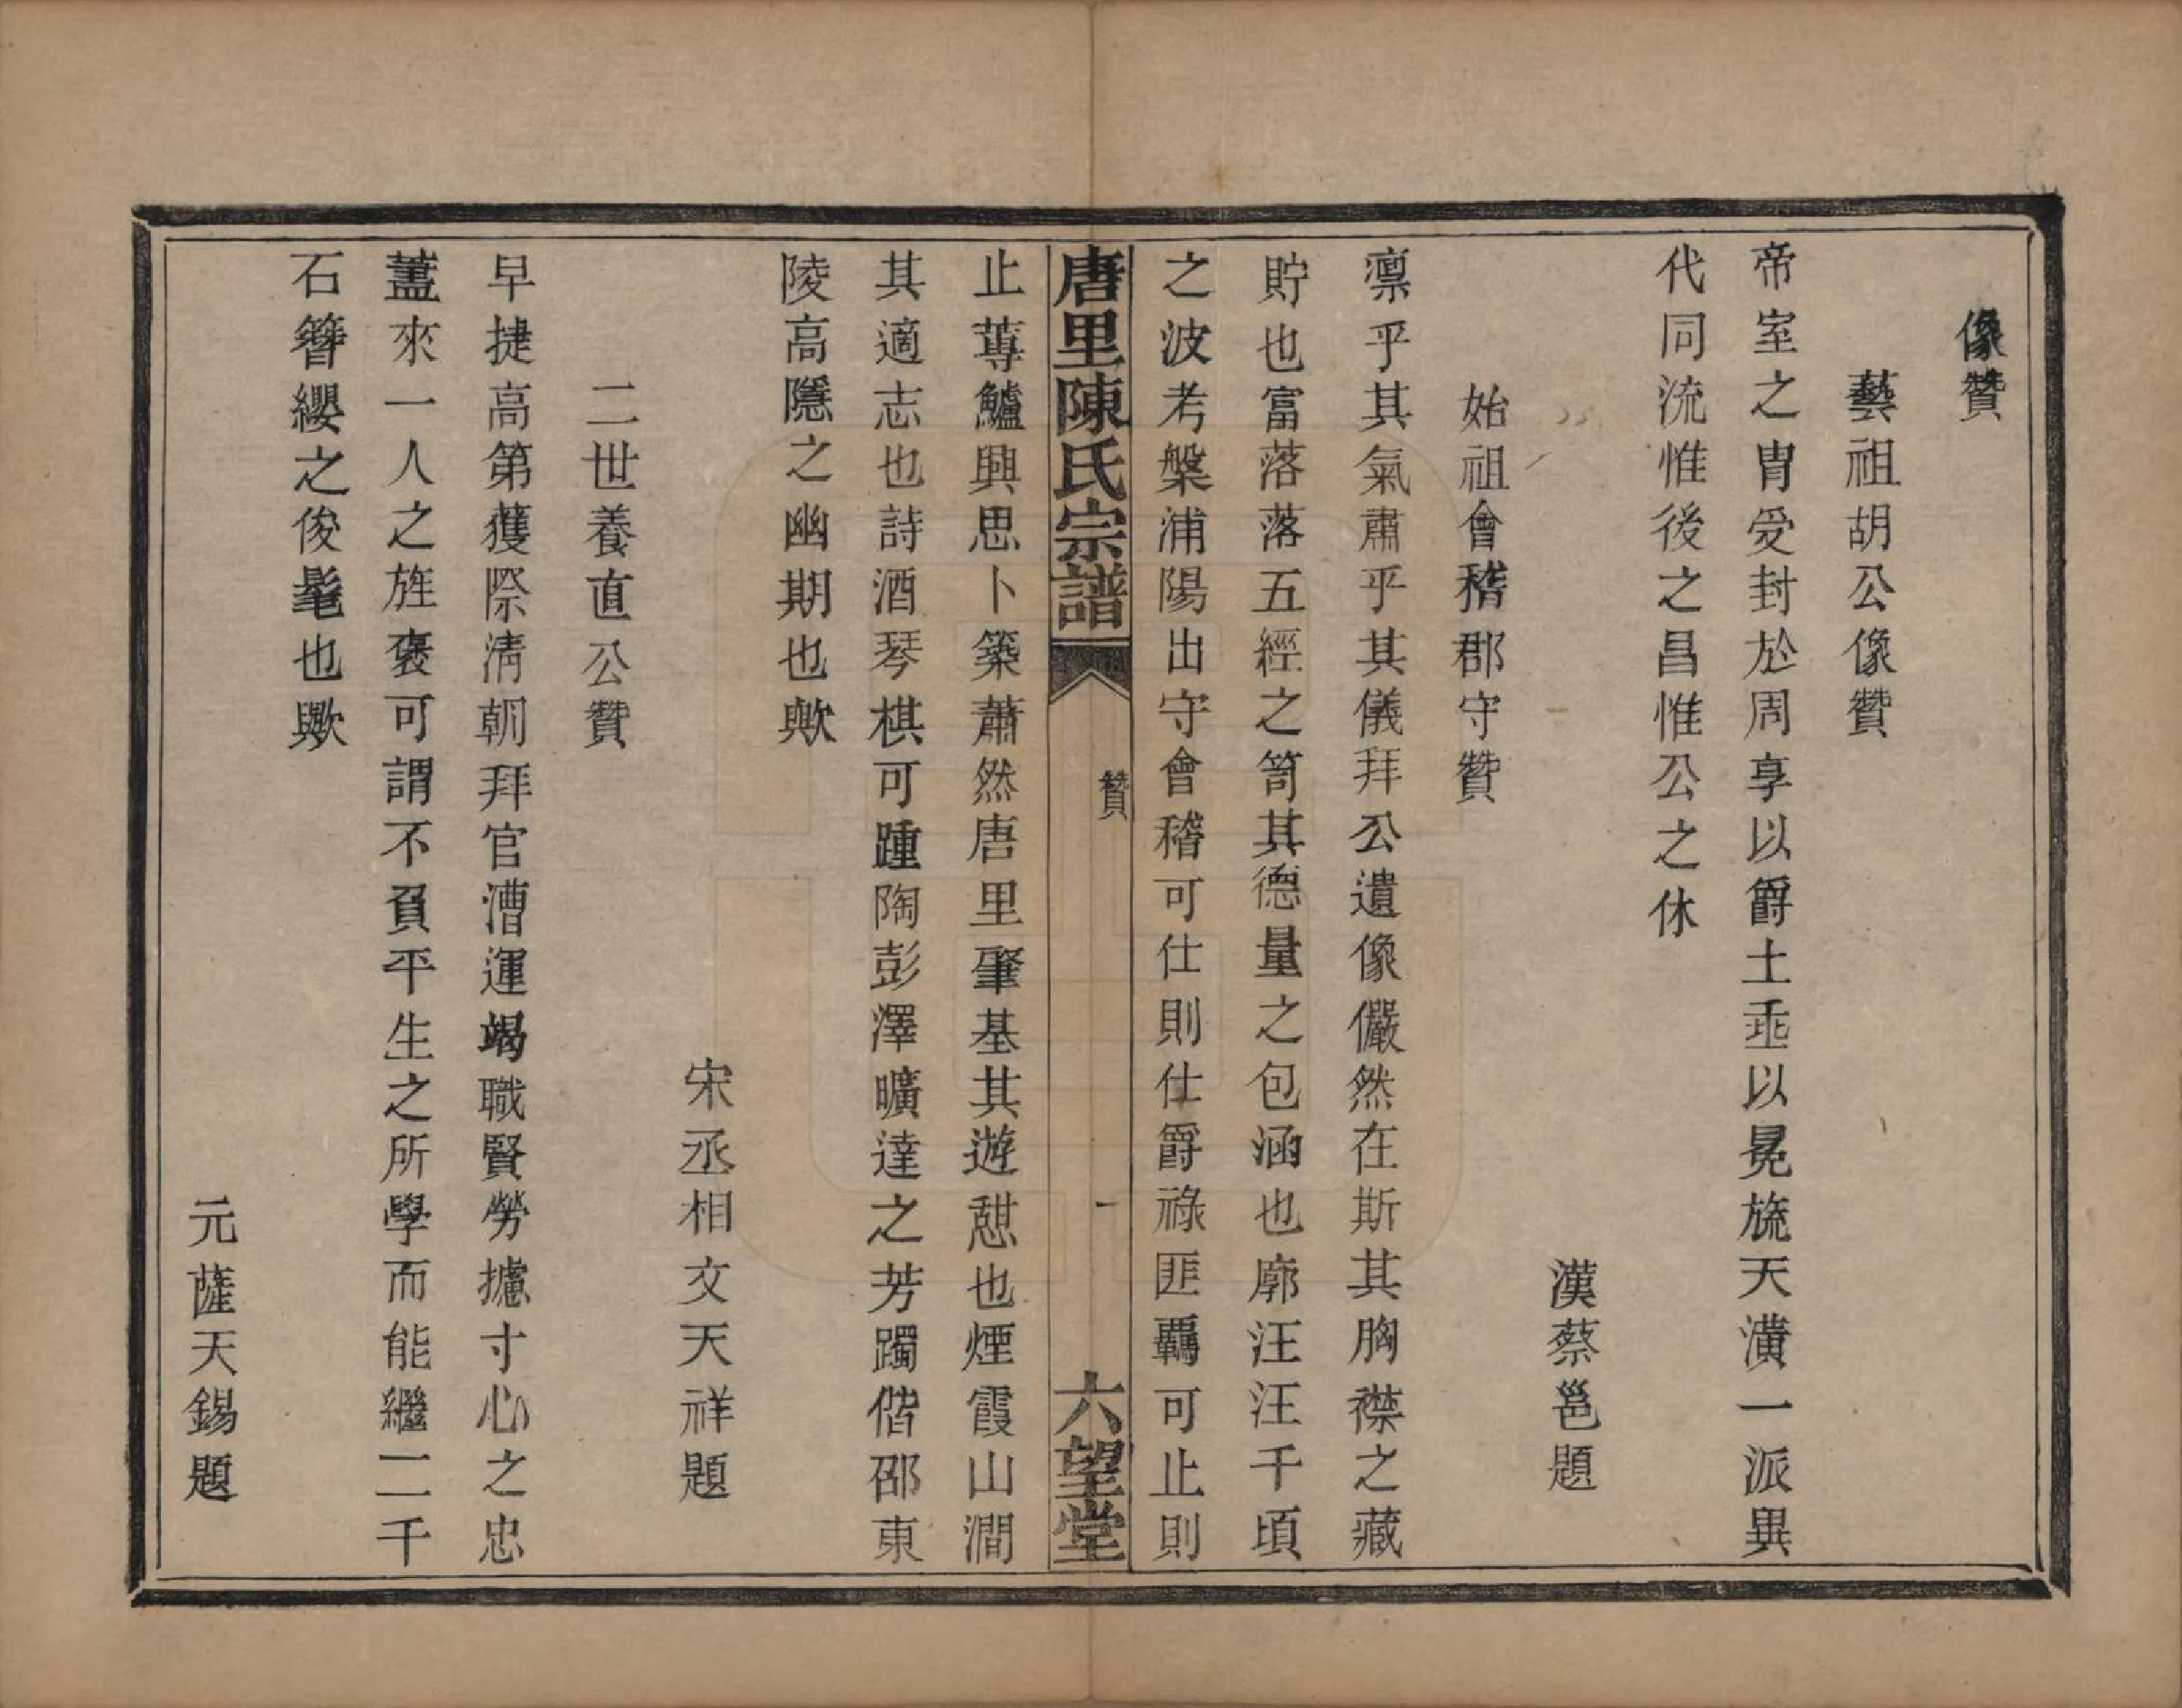 像贊
藝祖胡公像贊
帝室之冑受封於周享以爵土垂以冕旒天潢一派異
代同流惟後之昌惟公之休
漢蔡邕題
始祖會稽郡守贊
凛乎其氣肅乎其儀拜公遺像儼然在斯其胸襟之藏
貯也富落落五經之笥其德量之包涵也廓汪汪千頃
之波考槃浦陽出守會稽可仕則仕爵祿匪覊可止則
唐里陳氏宗譜
贊
一
六望堂
止蓴鱸興思卜築蕭然唐里肇基其遊憇也煙霞山澗
其適志也詩酒琴棋可踵陶彭澤曠達之芳躅偕邵東
陵高隱之幽期也歟
宋丞相文天祥題
二世養直公贊
早捷高第獲際清朝拜官漕運竭職賢勞攄寸心之忠
藎來一人之旌褒可謂不負平生之所學而能繼二千
石簪纓之俊髦也歟
元薩天錫題